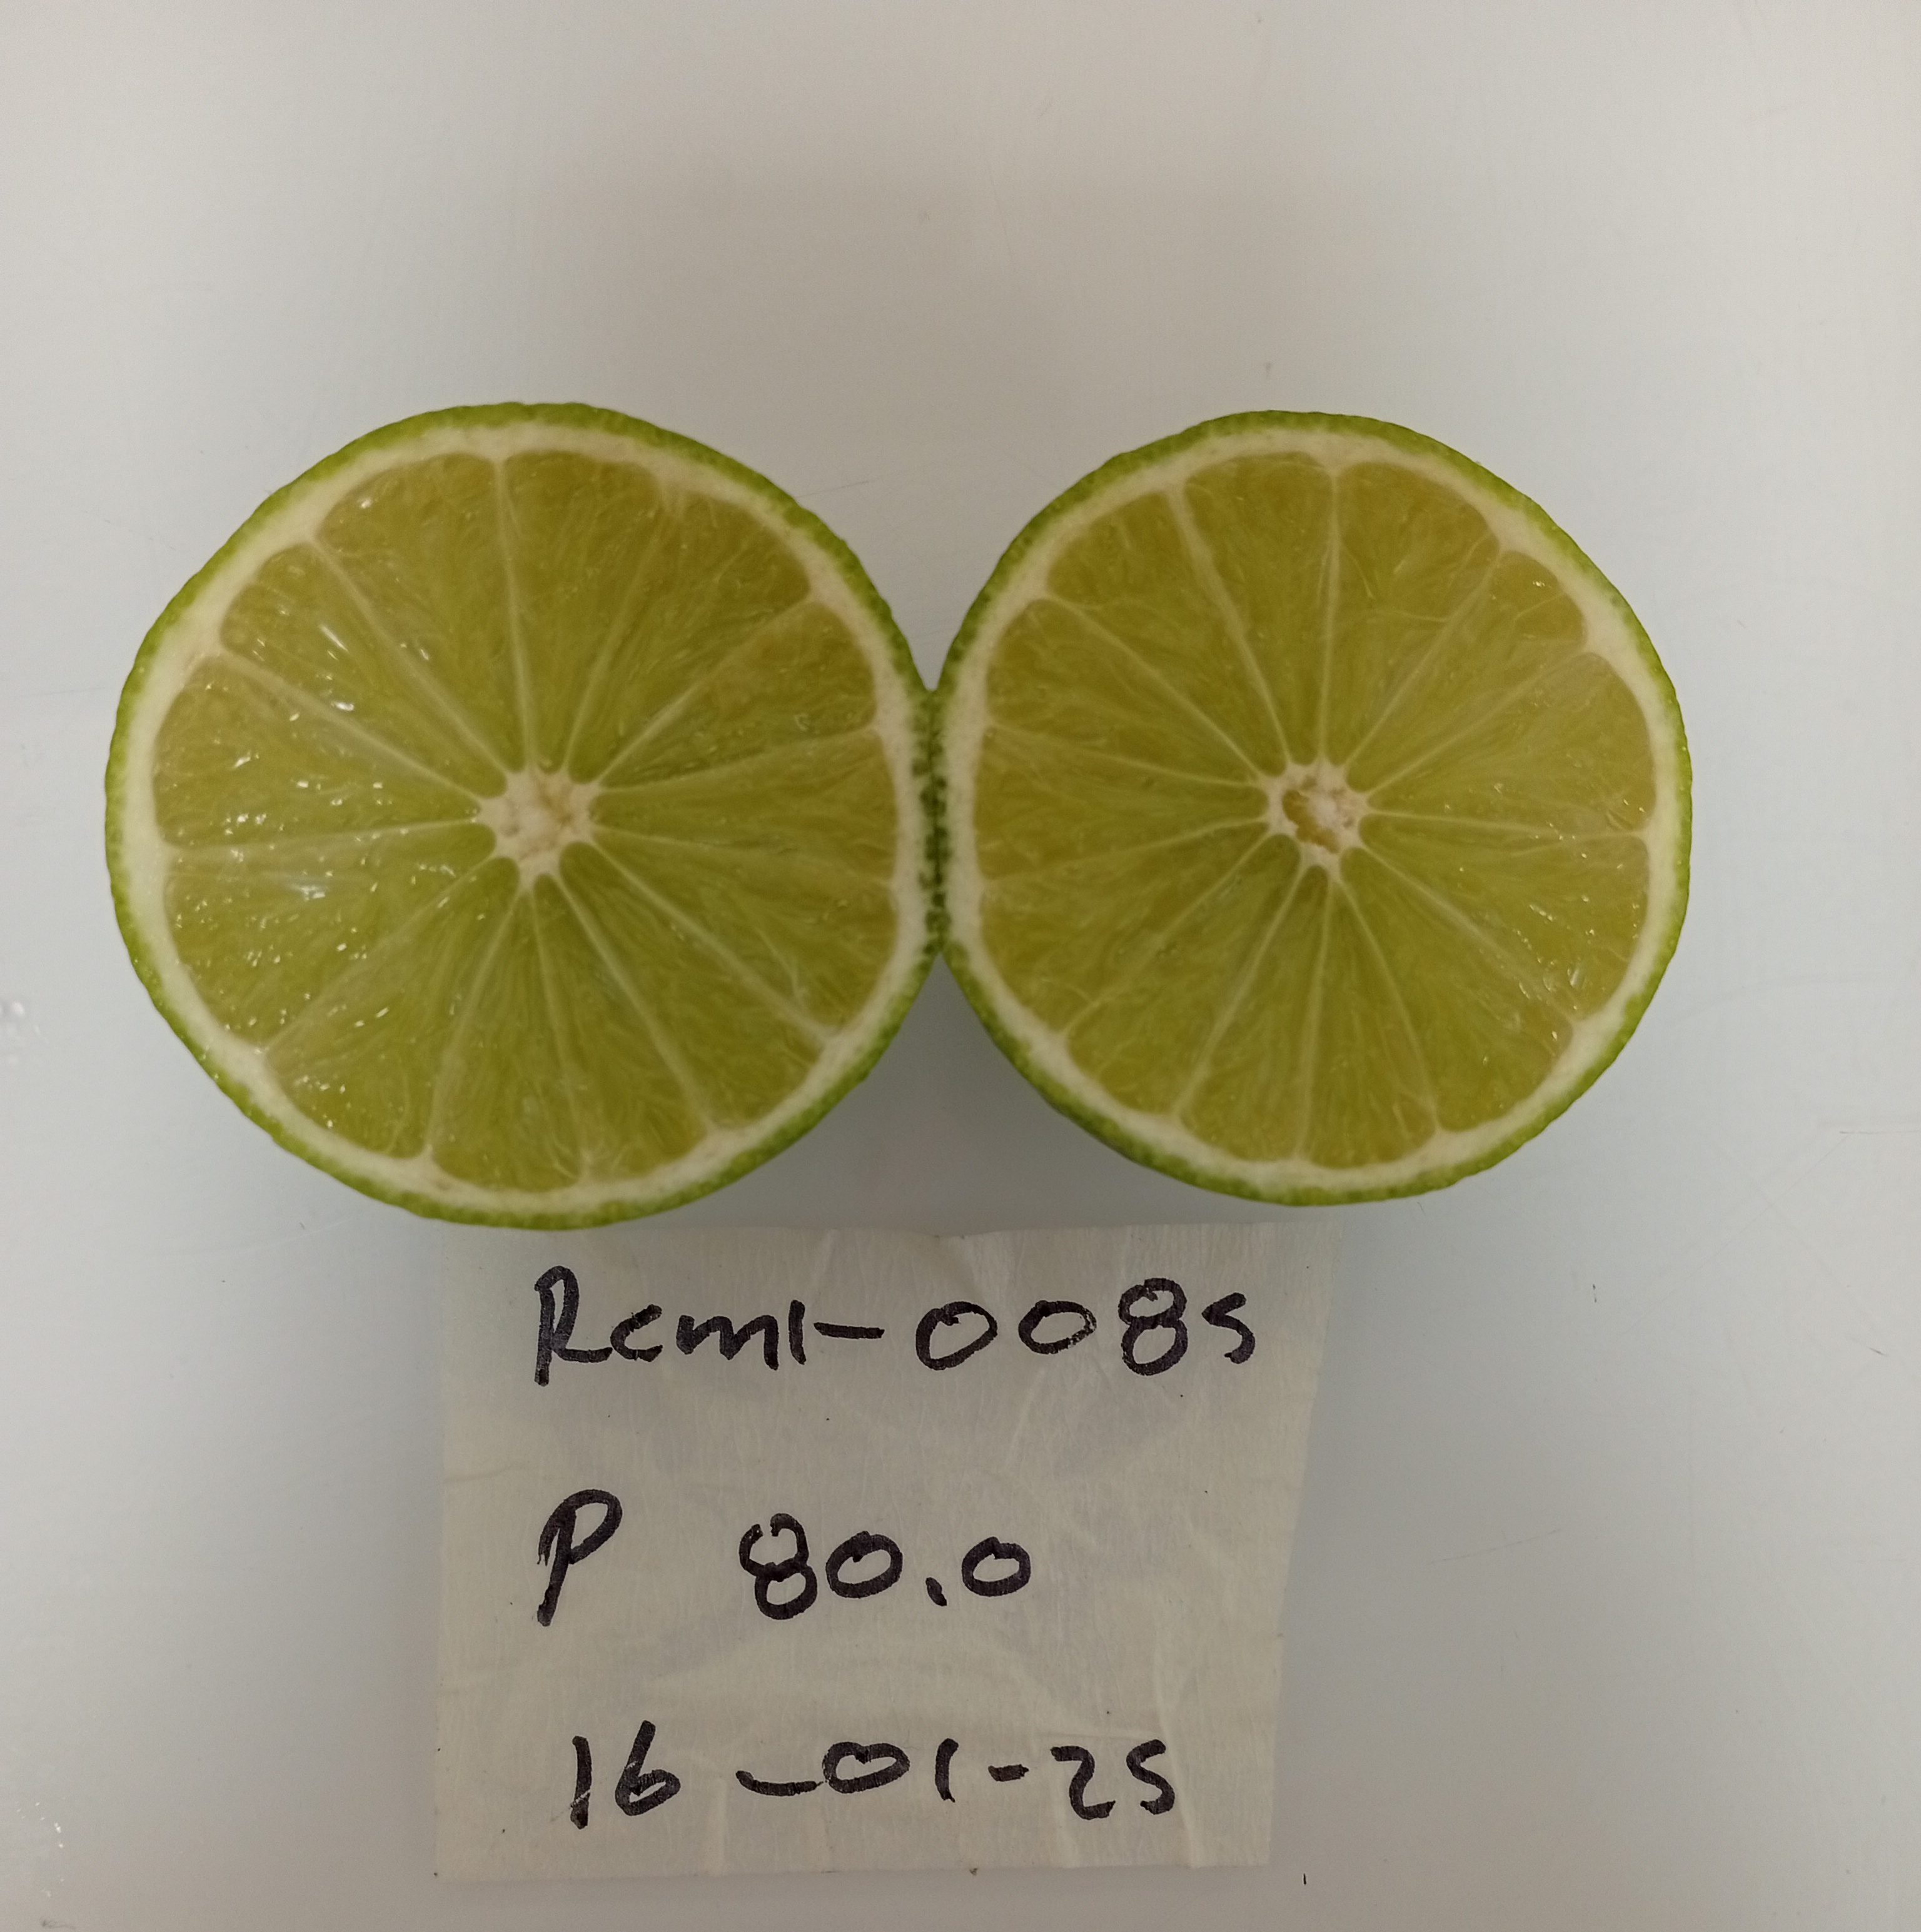 Rcml-0085
P 80.0
16-01-25